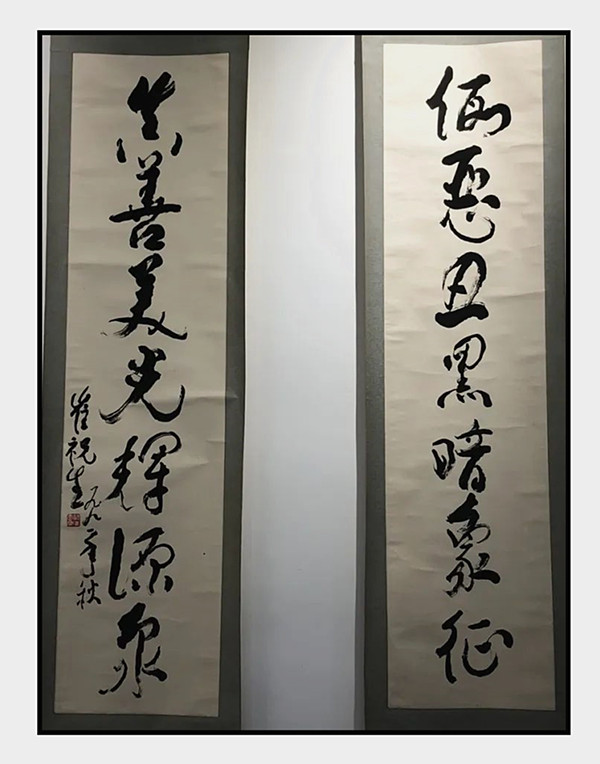 伪恶丑黑暗象征
真善美光辉源泉
崔祝生
一九九二年秋